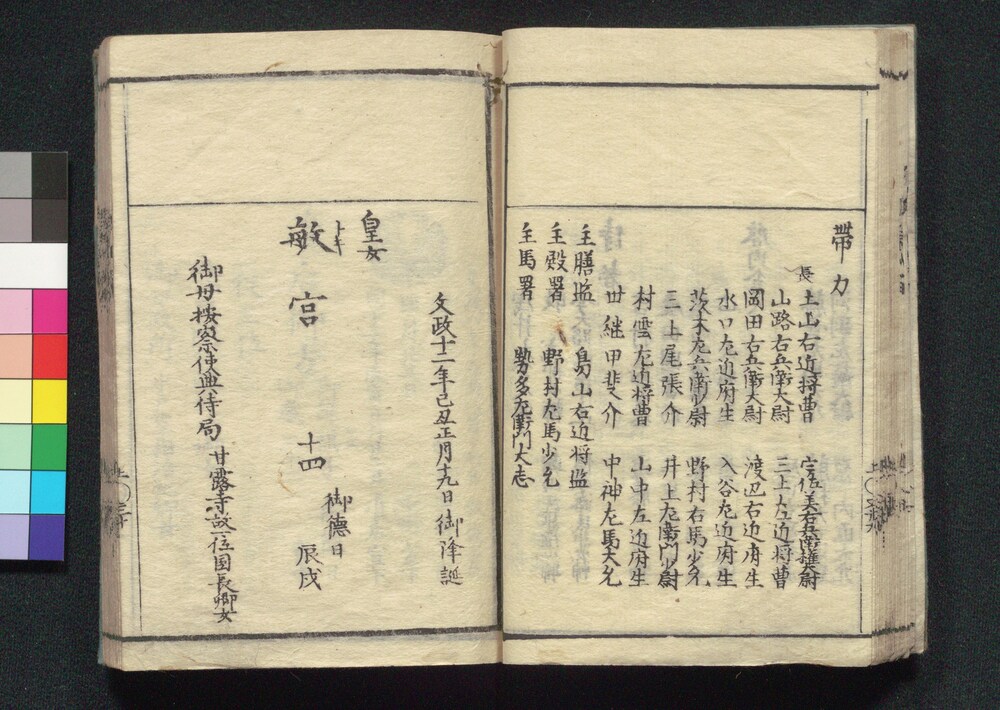 帯刀
長
土山右近将曹 宇佐美右兵衛権大尉
山路右兵衛大尉 三上左近将曹
岡田右兵衛大尉 渡辺右近府生
水口左近府生 入谷左近府生
茨木左兵衛少尉 野村右馬少允
三上尾張介 井上左衛門少尉
村雲左近将曹 山中左近府生
世継甲斐介 中神左馬大允
主膳監 島山右近将監
主殿署 野村左馬少允
主馬署 勢多左衛門大志
文政十二年己丑正月十九日御降誕
皇女
トキ
敏宮 十四
御徳日 辰戌
御母按察使典侍局 甘露寺故一位国長卿女